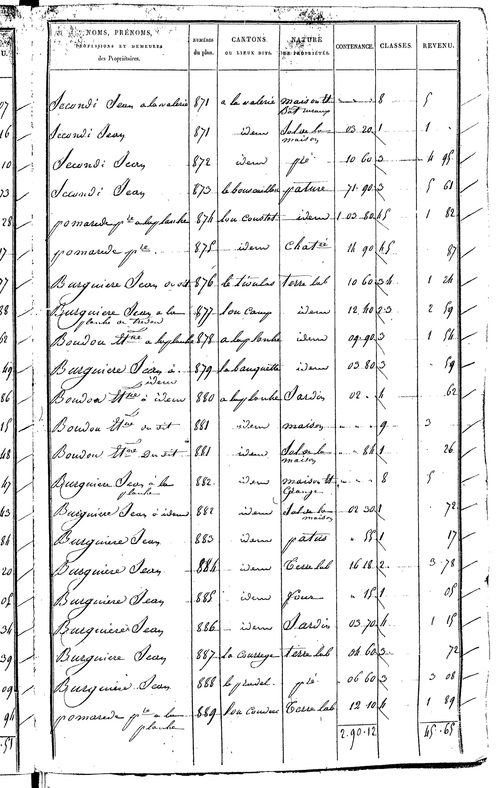 NOMS, PRÉNOMS, PROFESSIONS ET DEMEURES des Propriétaires. NUMÉROS du plan. CANTONS OU LIEUX DITS. NATURE DE PROPRIÉTÉS. CONTENANCE. CLASSES. REVENU.
Secondi Jean a lavalerie 871 a la valerie maison et Bât ruraux 8 5
Secondi Jean 871 idem Sol de la maison 03 20 1 1
Secondi Jean 872 idem pré 10 60 3 4 95
Secondi Jean 873 pature 71 90 3 5 61
pomarede pre a la planche 874 idem 1 03 80 45 1 82
pomarede pre 875 idem 14 90 45 87
Burguiere Jean dit 876 terre lab 10 60 34 1 24
Burguiere Jean a la planche 877 lou camp idem 12 40 23 2 59
Boudou Etne a la planche 878 a la planche idem 09 90 3 1 54
Burguiere Jean a idem 879 la banquette idem 03 80 3 59
Boudou Etne a idem 880 a la planche Jardin 02 4 62
Boudou Etne dit 881 idem maison 9 3
Boudou Etne du dit 881 idem Sol de la maison 84 1 26
Burguiere Jean a la planche 882 idem maison et Grange 8 5
Burguiere Jean a idem 882 idem Sol de la maison 02 30 1 72
Burguiere Jean 883 idem patus 55 1 17
Burguiere Jean 884 idem Terre lab 16 18 2 3 78
Burguiere Jean 885 idem four 15 1 05
Burguiere Jean 886 idem Jardin 03 70 4 1 15
Burguiere Jean 887 la courrege terre lab 04 60 3 72
Burguiere Jean 888 le pradel pré 06 60 3 3 08
pomarede pre a la planche 889 Terre lab 12 10 4 1 89
2.90.12 45.65